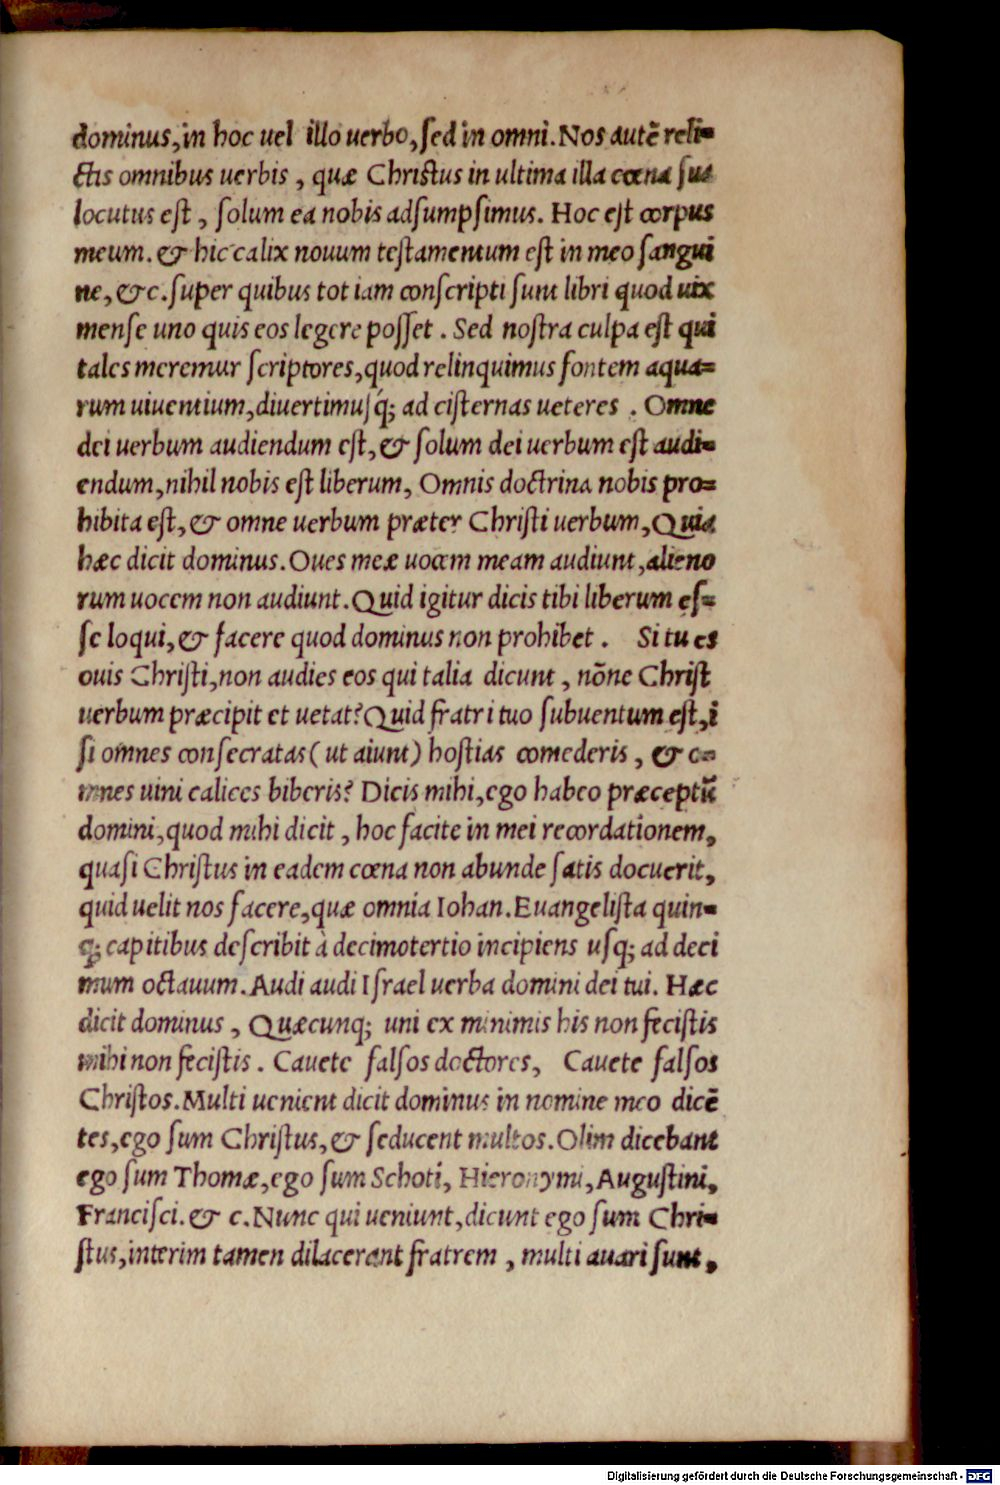 dominus, in hoc uel illo uerbo, sed in omni. Nos autē reli=
ctis omnibus uerbis, quæ Christus in ultima illa cœna sua
locutus est, solum ea nobis adsumpsimus. Hoc est corpus
meum. & hic calix nouum testamentum est in meo sangui
ne, &c. super quibus tot iam conscripti sunt libri quod uix
mense uno quis eos legere posset. Sed nostra culpa est qui
tales meremur scriptores, quod relinquimus fontem aqua=
rum uiuentium, diuertimusq́; ad cisternas ueteres. Omne
dei uerbum audiendum est, & solum dei uerbum est audi=
endum, nihil nobis est liberum, Omnis doctrina nobis pro=
hibita est, & omne uerbum præter Christi uerbum, Quia
hæc dicit dominus. Oues meæ uocem meam audiunt, alieno
rum uocem non audiunt. Quid igitur dicis tibi liberum es=
se loqui, & facere quod dominus non prohibet. Si tu es
ouis Christi, non audies eos qui talia dicunt, nōne Christ
uerbum præcipit et uetat? Quid fratri tuo subuentum est, i
si omnes consecratas (ut aiunt) hostias comederis, & o=
mnes uini calices biberis? Dicis mihi, ego habeo præceptū
domini, quod mihi dicit, hoc facite in mei recordationem,
quasi Christus in eadem cœna non abunde satis docuerit,
quid uelit nos facere, quæ omnia Iohan. Euangelista quin=
q; capitibus describit à decimotertio incipiens usq; ad deci
mum octauum. Audi audi Israel uerba domini dei tui. Hæc
dicit dominus, Quæcunq; uni ex minimis his non fecistis
mihi non fecistis. Cauete falsos doctores, Cauete falsos
Christos. Multi uenient dicit dominus in nomine meo dicē
tes, ego sum Christus, & seducent multos. Olim dicebant
ego sum Thomæ, ego sum Schoti, Hieronymi, Augustini,
Francisci. & c. Nunc qui ueniunt, dicunt ego sum Chri=
stus, interim tamen dilacerant fratrem, multi auari sunt,
Digitalisierung gefördert durch die Deutsche Forschungsgemeinschaft - DFG